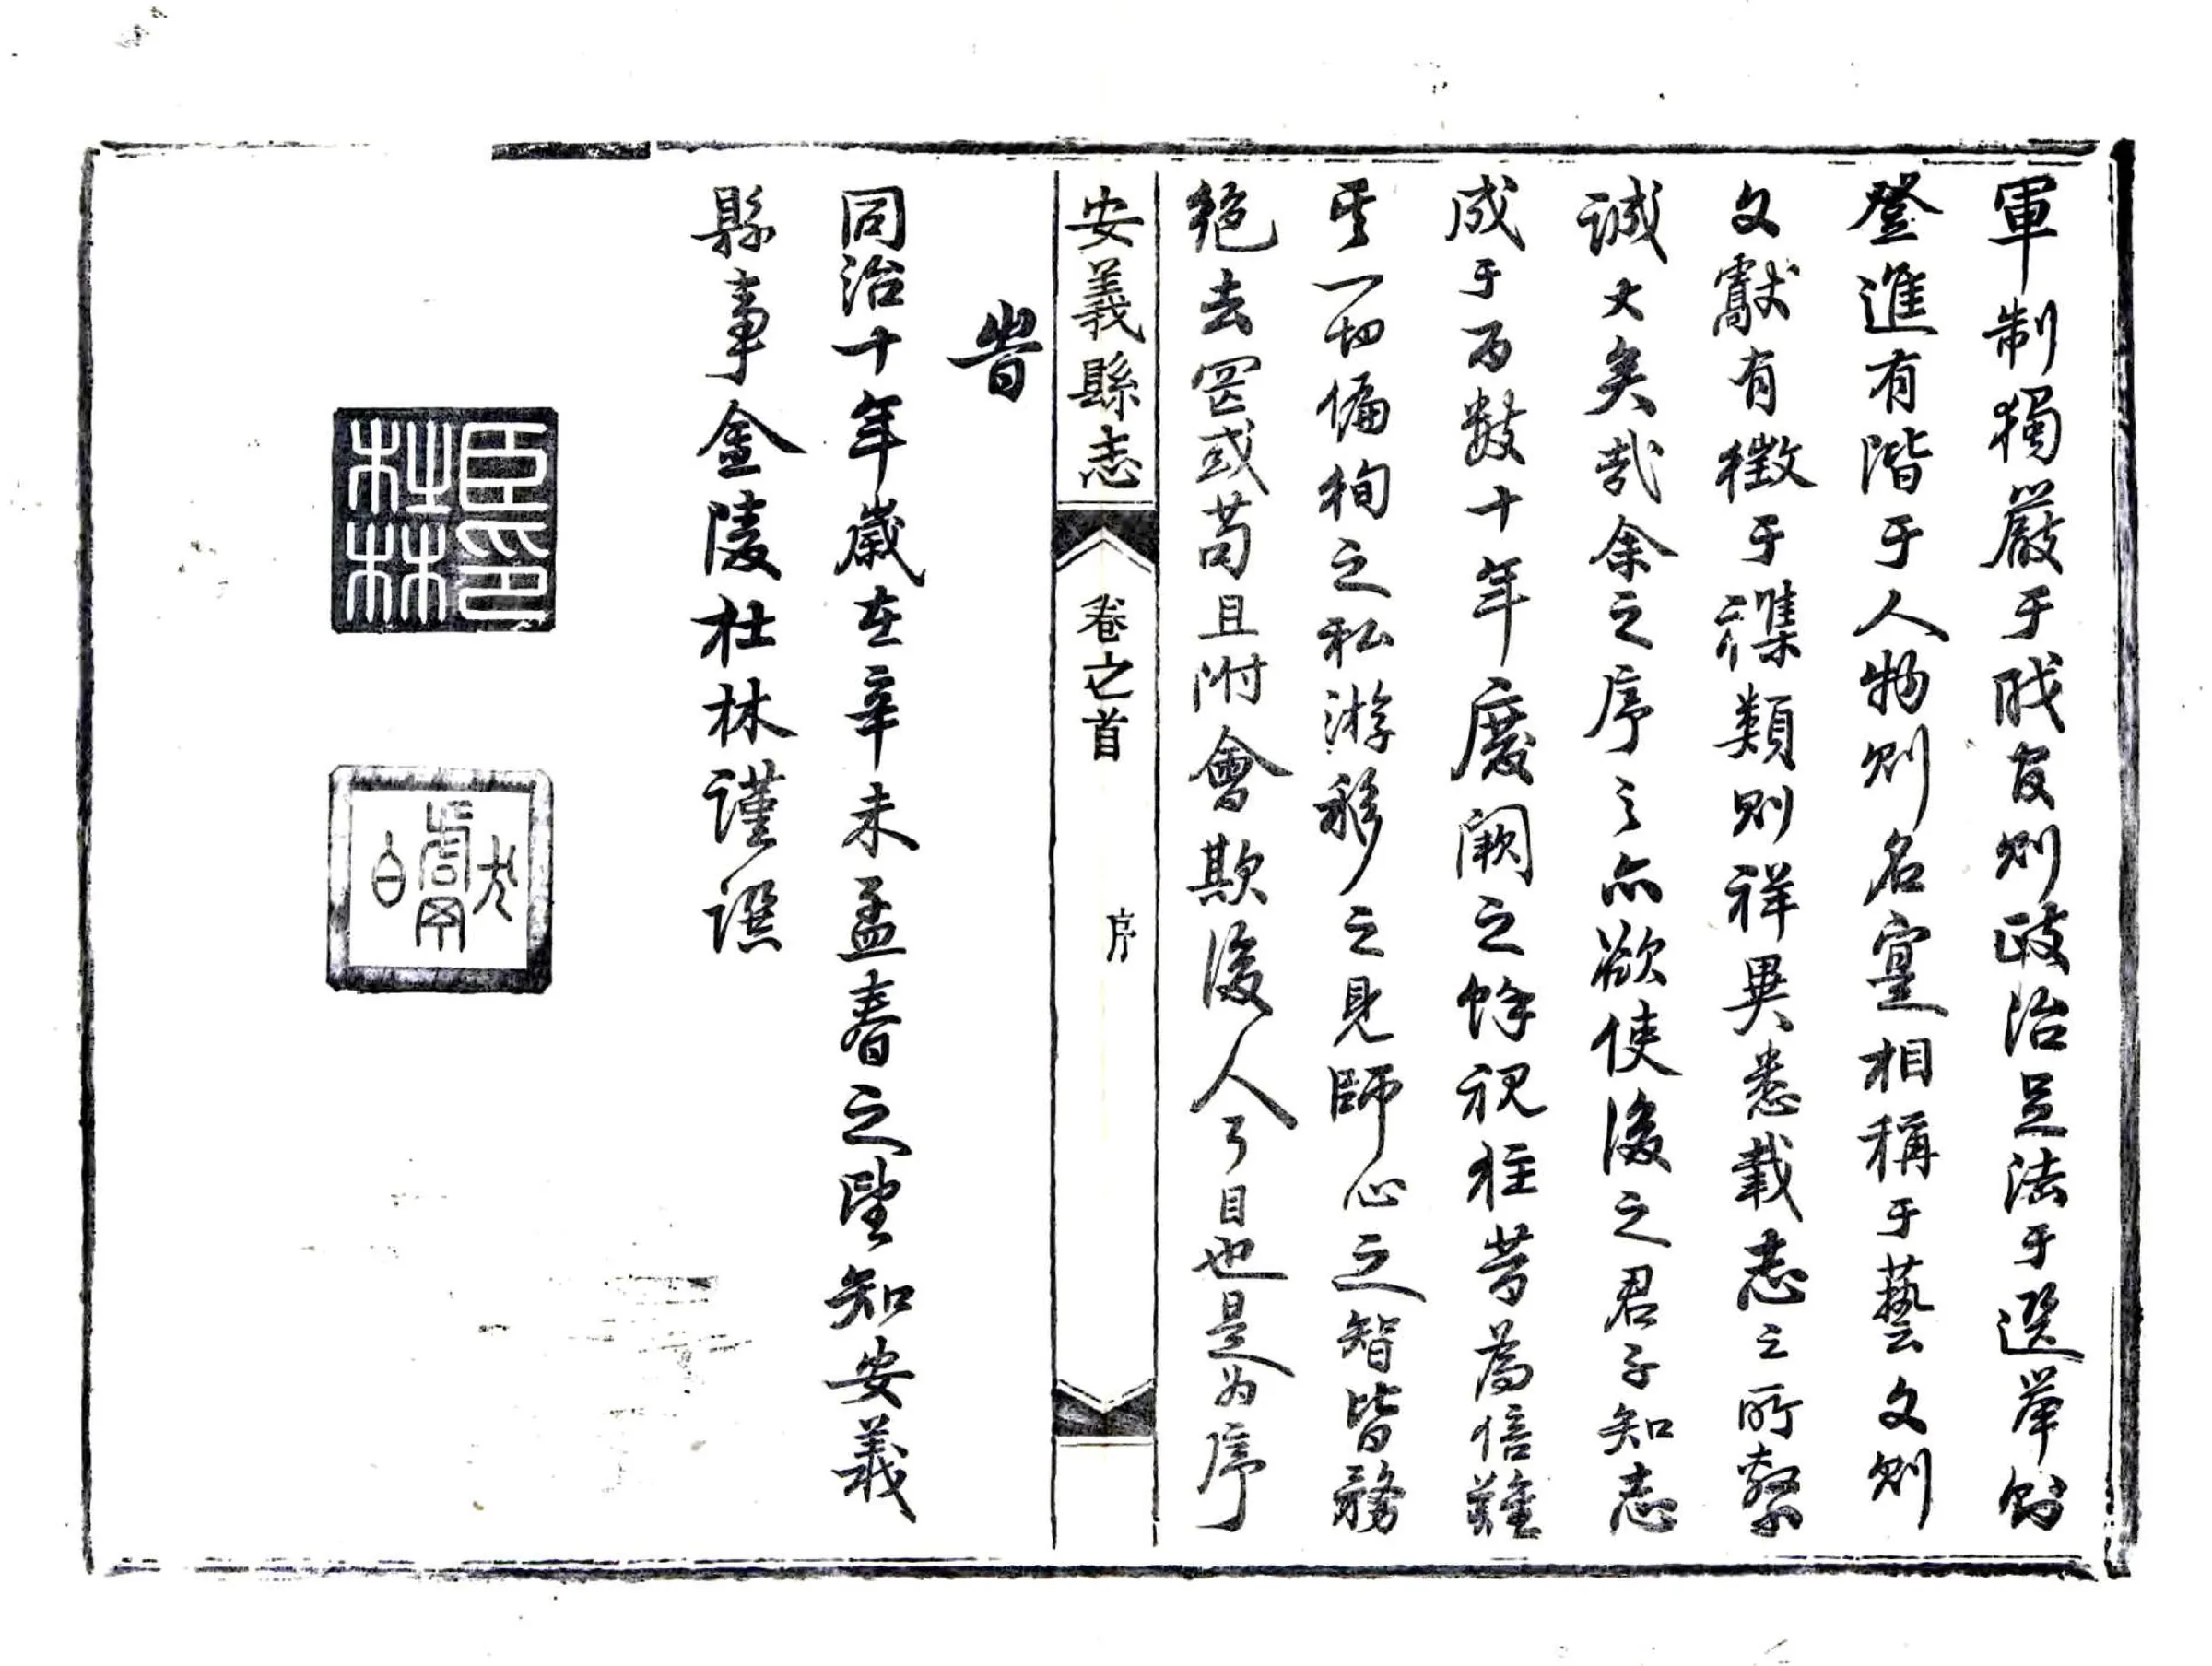 軍制獨嚴于職官則政治足法于選舉則
登進有階于人物則名寔相稱于藝文則
文獻有徵于襍類則祥異悉載志之所繫
誠大矣哉余之序之亦欲使後之君子知志
成于百數十年廢闕之餘視往昔為倍難
其一切偏徇之私游移之見師心之智皆務
絕去罔或苟且附會欺後人耳目也是为序
安義縣志 卷之首 序
旹
同治十年歲在辛未孟春之望知安義
縣事金陵杜林謹譔
臣印
杜林